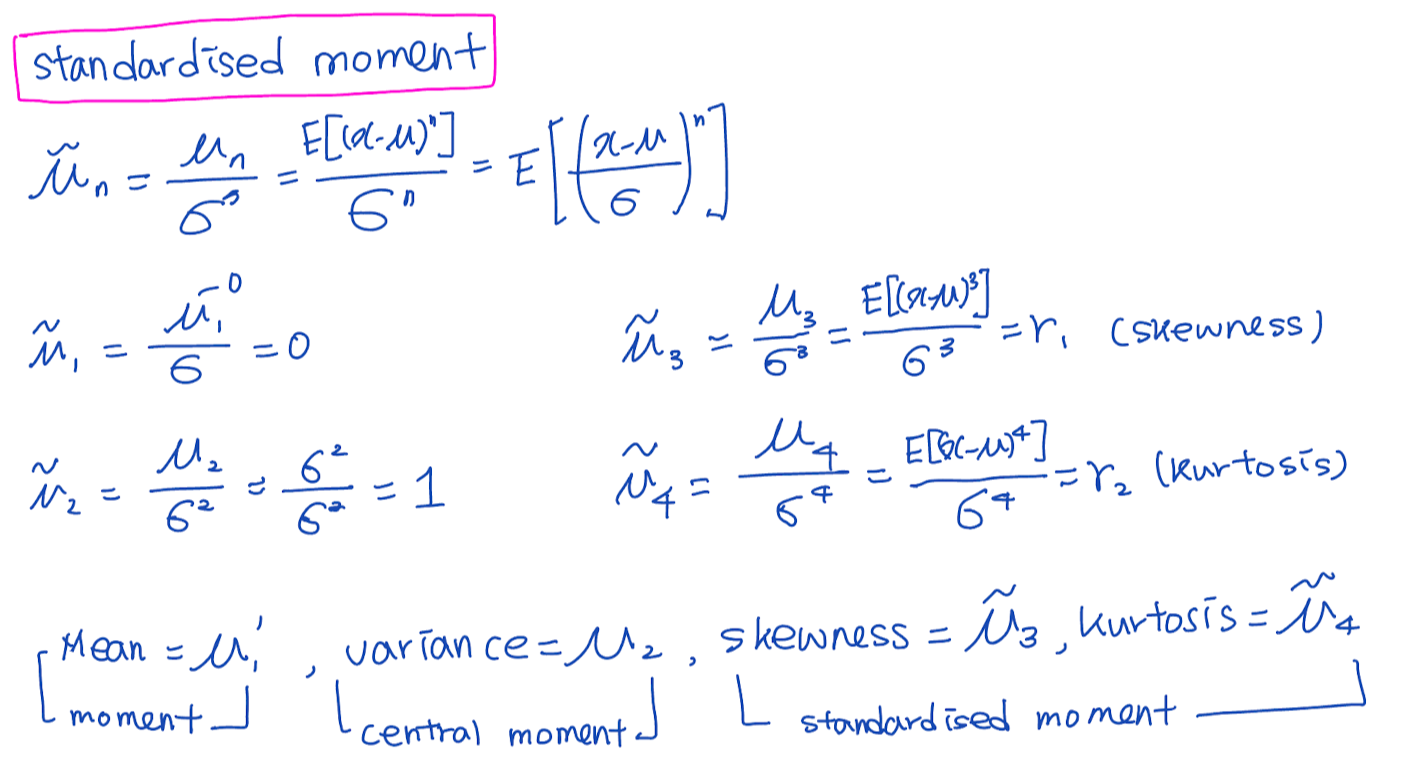 standardised moment
μ̃ₙ = μₙ/σⁿ = E[(x-μ)ⁿ]/σⁿ = E[((x-μ)/σ)ⁿ]
μ̃₁ = μ₁→0/σ = 0
μ̃₂ = μ₂/σ² = σ²/σ² = 1
μ̃₃ = μ₃/σ³ = E[(x-μ)³]/σ³ = r₁ (skewness)
μ̃₄ = μ₄/σ⁴ = E[(x-μ)⁴]/σ⁴ = r₂ (kurtosis)
Mean = μ₁', variance = μ₂, skewness = μ̃₃, kurtosis = μ̃₄
moment central moment standardised moment